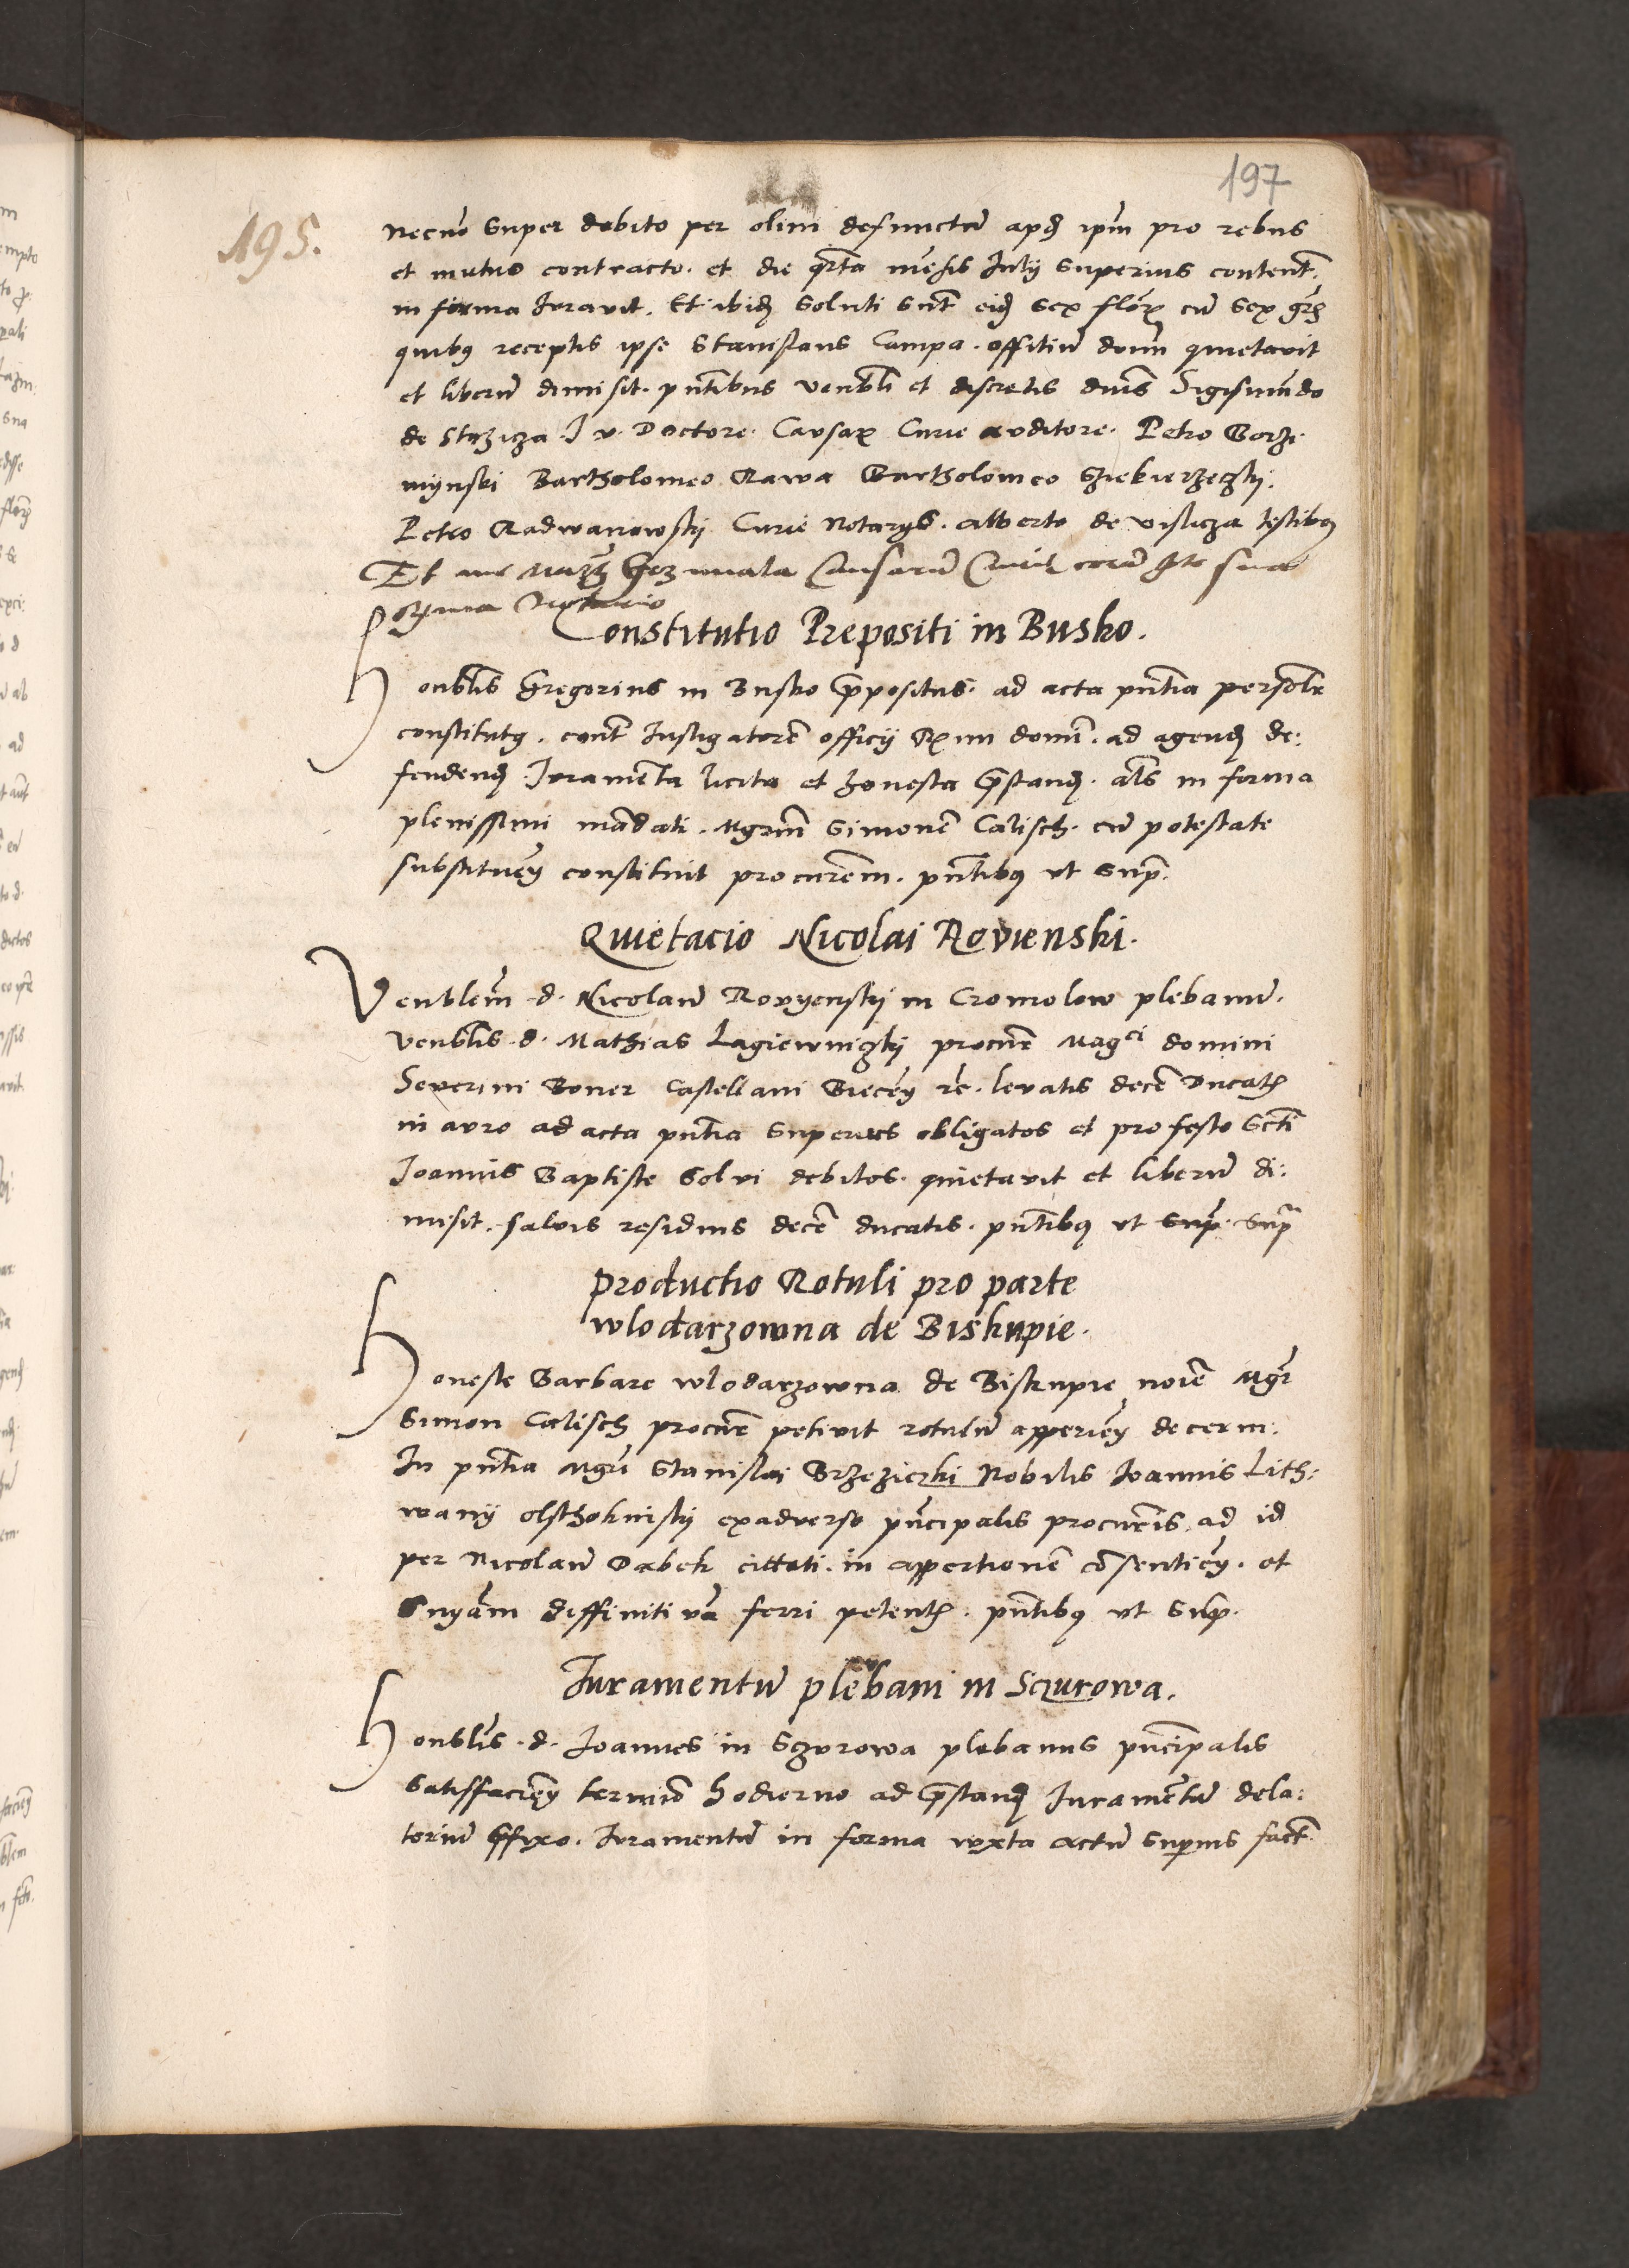 197
195.
necnō super debito per olim defunctū apd ipm̄ pro rebus
et mutuo contracto. et die qrta mēsis Julij superius content.
in forma Juravit. Et ibid soluti sūt eid sex flor cū sex grs
quibus receptis ipse Stanislaus Campa. offitiū dnm̄ quietavit
et liberū dimisit. pntibus venbli et discretis dnis Sigismūdo
de Strzicza. J. v. Doctore. Causar Curie auditore. Petro Gorzi:
mijnski Bartholomeo Rawa Bartholomeo
Petro Radwanowskij Curie Notarys. alberto de vislicza testibus
Et me Causarū corā
Notario
Constitutio Prepositi in Busko.
Honblis Gregorius in Busko ppositus. ad acta pntia personlr
constitutus. cont Instigatorē officij Rmi domi. ad agend de:
fendend. Juramenta licita et honesta pstand. als in forma
plenissimi mādati. mgrm̄ Simonē Calisch. cū potestate
substituen constituit procurem. pntibus ut supr.
Quietacio Nicolai Rovienski.
Venblem̄. d. Nicolaū Rovyenskij in Cromolow plebanū.
venblis. d. Mathias Lagiewniczkij procure Magci domini
Severini Boner Castellani Biecen re. levatis decē ducatis
in auro ad acta pntia superius obligatos et pro festo Scti
Joannis Baptiste solvi debitos. quietavit et liberū di:
misit. salvis residuis decē ducatis. pntibus ut supr. supr
Productio Rotuli pro parte
wlodarzowna de Biskupie.
Honeste Barbare wlodarzowna de Biskupie noīe Mgr
Simon Calisch procure petivit rotulū apperien decerni.
In pntia Mgri Stanislai Brzeziczki Nobilis Joannis Lith:
wanij exadverso pncipalis procuris, ad id
per Nicolaū Dabek cittati. in appertionē cōsentien. et
snyam diffinitivā ferri petentis. pntibus ut supr.
Juramentū plebani in Sczurowa.
Honblis. d. Joannes in Sczurowa plebanus pncipalis
satisfacien termino hodierno ad pstand Juramētū dela:
toriū pfixo. Juramentū in forma iuxta actū supius fact.